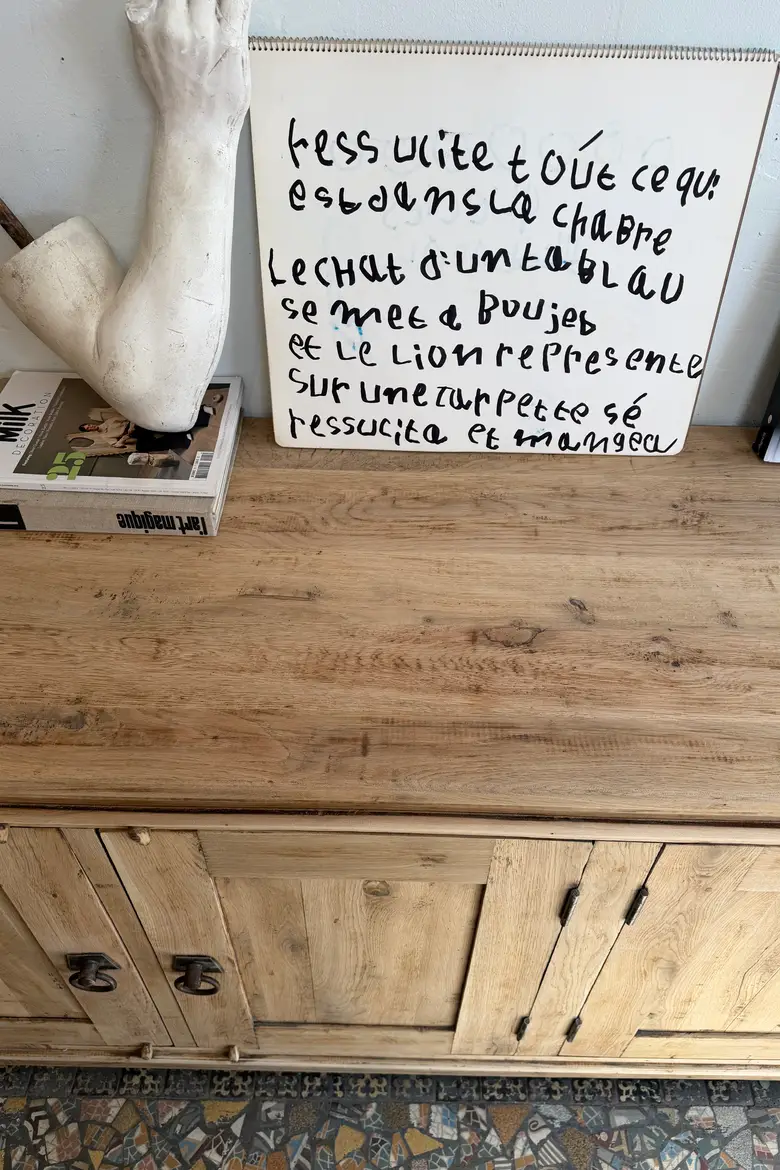 ressucite toút ce qui
est dans la chabre
Le cHat d'un tabLau
se met a Boujeb
et Le Lion represente
sur une carpette sé
ressucita et mangea
MilK
DECORATION
25
l'art magique